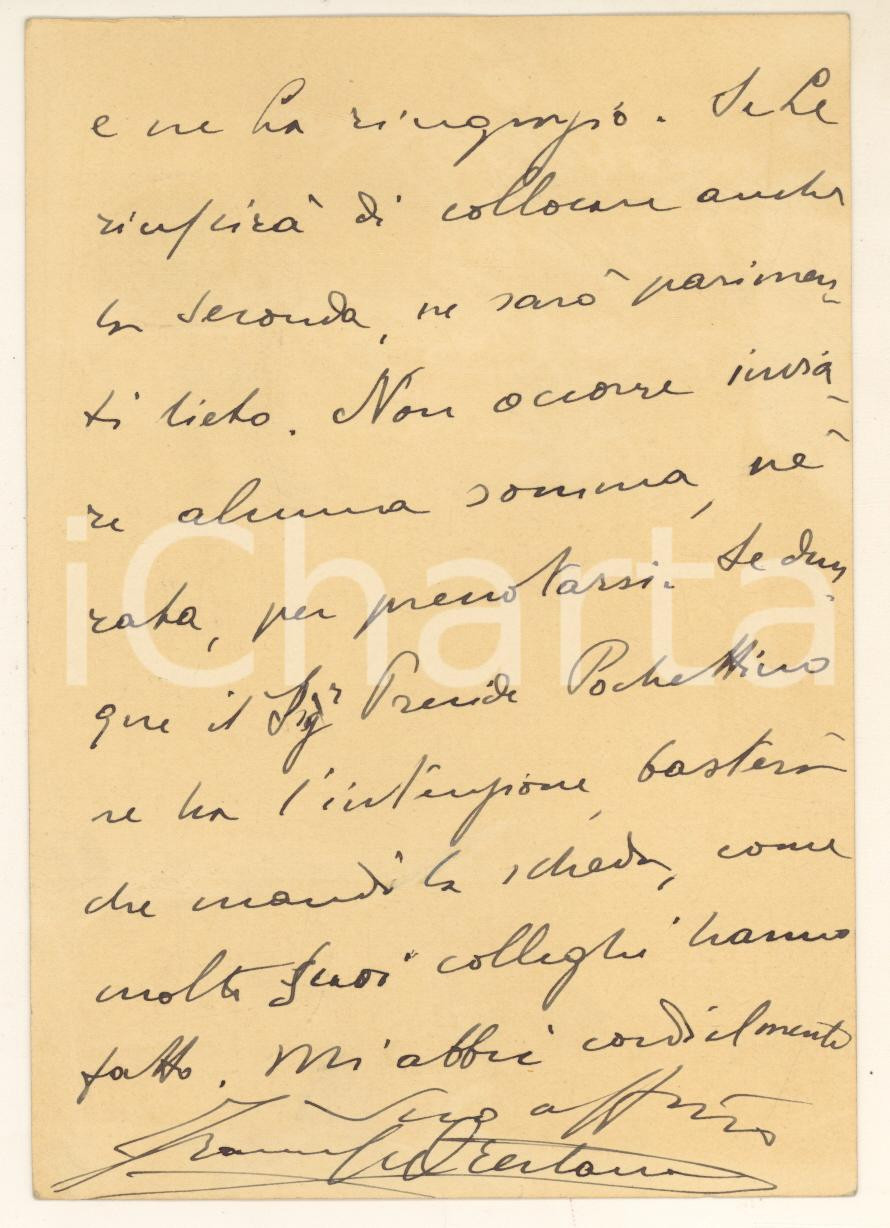 e ne La ringrazio. Se Le
riuscirà di collocare anche
la seconda, ne sarò parimen-
ti lieto. Non occorre invia-
re alcuna somma, nè
rata, per prenotarsi. Se dun-
que il Sigr Preside Pochettino
ne ha l'intenzione, basterà
che mandi la scheda, come
molti suoi colleghi hanno
fatto. Mi abbia cordialmente
Suo aff.mo
iCharta